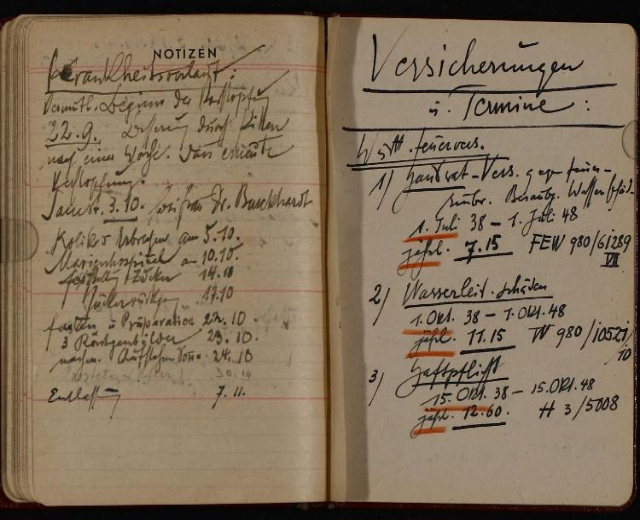 NOTIZEN
Krankheitsverlauf:
Vermutl. Beginn der Verstopfung
22.9. Besserung durch Pillen
nach einer Woche. Dann erneute
Verstopfung.
3.10. Dr. Burckhardt
Kolik u. Erbrechen am 5.10.
Marienhospital am 10.10.
Zucker 14.10
17.10
fasten u. Präparation 22.10.
3 Röntgenbilder 23.10.
24.10
30.10
Entlassung 7.11.
Versicherungen
u. Termine:
Württ Feuervers.
1) Hausrat-Vers. gegen Feuer-
Einbr. Beraubg. Wasserschäd.
1. Juli 38 – 1. Juli 48
jährl. 7.15 FEW 980/61289
VII
2) Wasserleit. schäden
1. Okt. 38 – 1. Okt. 48
jährl. 11.15 W 980/10521
/10
3) Haftpflicht
15. Okt. 38 – 15. Okt. 48
jährl. 12.60. H 3/5008